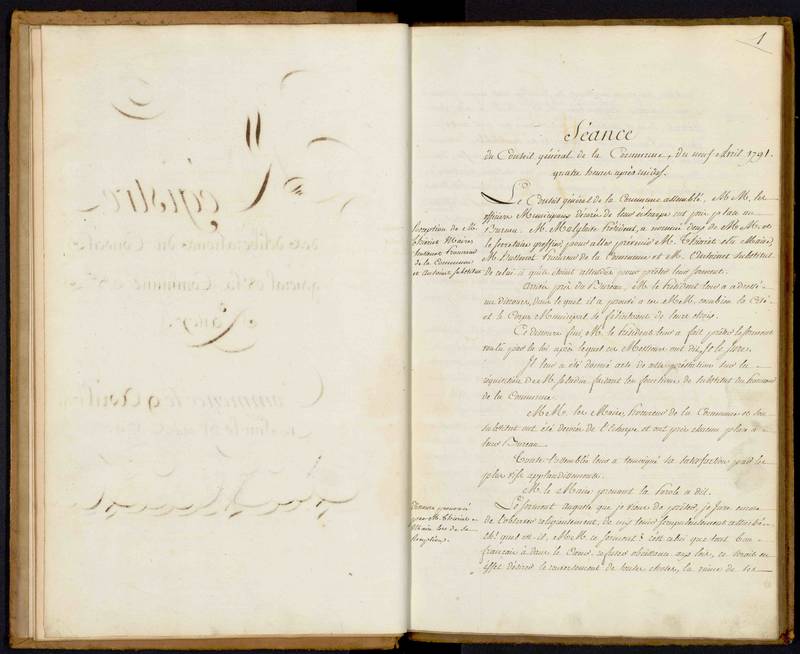 Registre
des déliberations du Conseil
général de la Commune de
Nancy.
Commencé le 9 Avril
1
Séance
du Conseil général de la Commune, du neuf Avril 1791.
quatre heures après midi.
Le Conseil général de la Commune assemblé, MM. les
officiers Municipaux décorés de leurs écharpes ont pris place au
Bureau. M. Malglaive Président, a nommé deux de MM. et
le secretaire greffier, pour aller prevenir M. Thiriet elu Maire,
M. Procureur de la Commune et M. Antoinet substitut
de celui-ci qu'ils étaient attendus pour prêter leur serment.
Reception de M.
Thiriet Maire
Procureur
de la Commune
et Antoinet substitut
Arrivés près du Bureau, M. le Président leur a adressé
un discours, dans lequel il a prouvé a ces MM. combien la Cité
et le Corps Municipal se félicitaient de leurs choix.
Ce discours fini, M. le Président leur a fait prêter le serment
voulu par la loi après lequel ces Messieurs ont dit, Je le Jure.
Il leur a été donné acte de cette prestation sur la
réquisition de M. faisant les fonctions de substitut du Procureur
de la Commune.
MM. les Maire, Procureur de la Commune et son
substitut ont été décorés de l'Echarpe et ont pris chacun place à
leurs Bureau.
Toute l'assemblée leur a temoigné sa satisfaction par les
plus vifs applaudissements.
M. le Maire prenant la Parole a dit.
Discours prononcé
par M. Thiriet
Maire lors de sa
Reception.
Le serment auguste que je viens de prêter, je jure encore
de l'observer religieusement, de m'y tenir scrupuleusement attaché.
Eh! quel est-il, MM. ce serment? c'est celui que tout bon
français a dans le Coeur. refuser obéissance aux loix, ce serait en
effet désirer le renversement de toutes choses, la ruine de ses